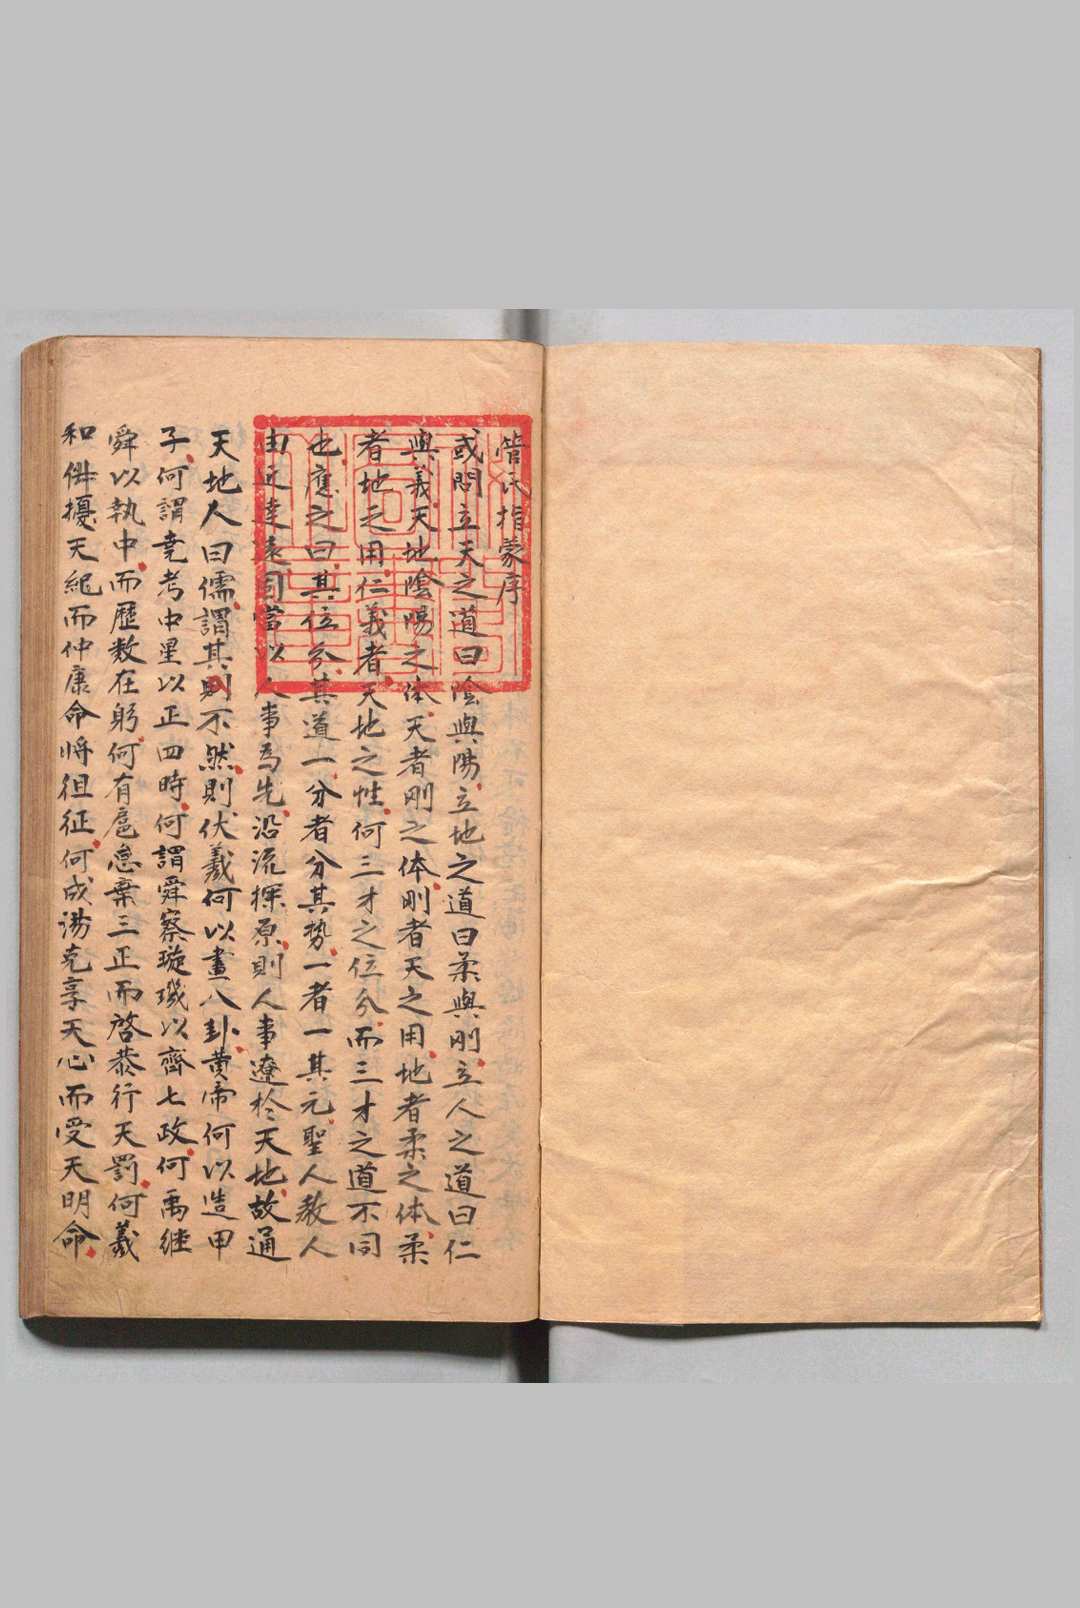 管氏指蒙序
或問立天之道曰陰與陽立地之道曰柔與剛立人之道曰仁
與義天地陰陽之体天者剛之体剛者天之用地者柔之体柔
者地之用仁義者天地之性何三才之位分而三才之道不同
也應之曰其位分其道一分者分其势一者一其元聖人教人
由近達遠同當以人事為先沿流探原則人事遼於天地故通
天地人曰儒謂其則不然則伏羲何以畫八卦黄帝何以造甲
子何謂堯考中星以正四時何謂舜察璇璣以齊七政何禹継
舜以執中而歷数在躬何有扈怠棄三正而啓恭行天罰何羲
和俶擾天紀而仲康命将徂征何成湯克享天心而受天明命